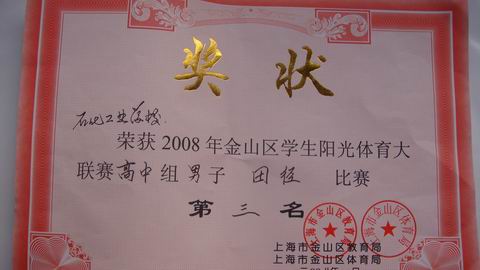 奖状
石化工业学校
荣获2008年金山区学生阳光体育大
联赛高中组男子 田径 比赛
第三名
上海市金山区教育局
上海市金山区体育局